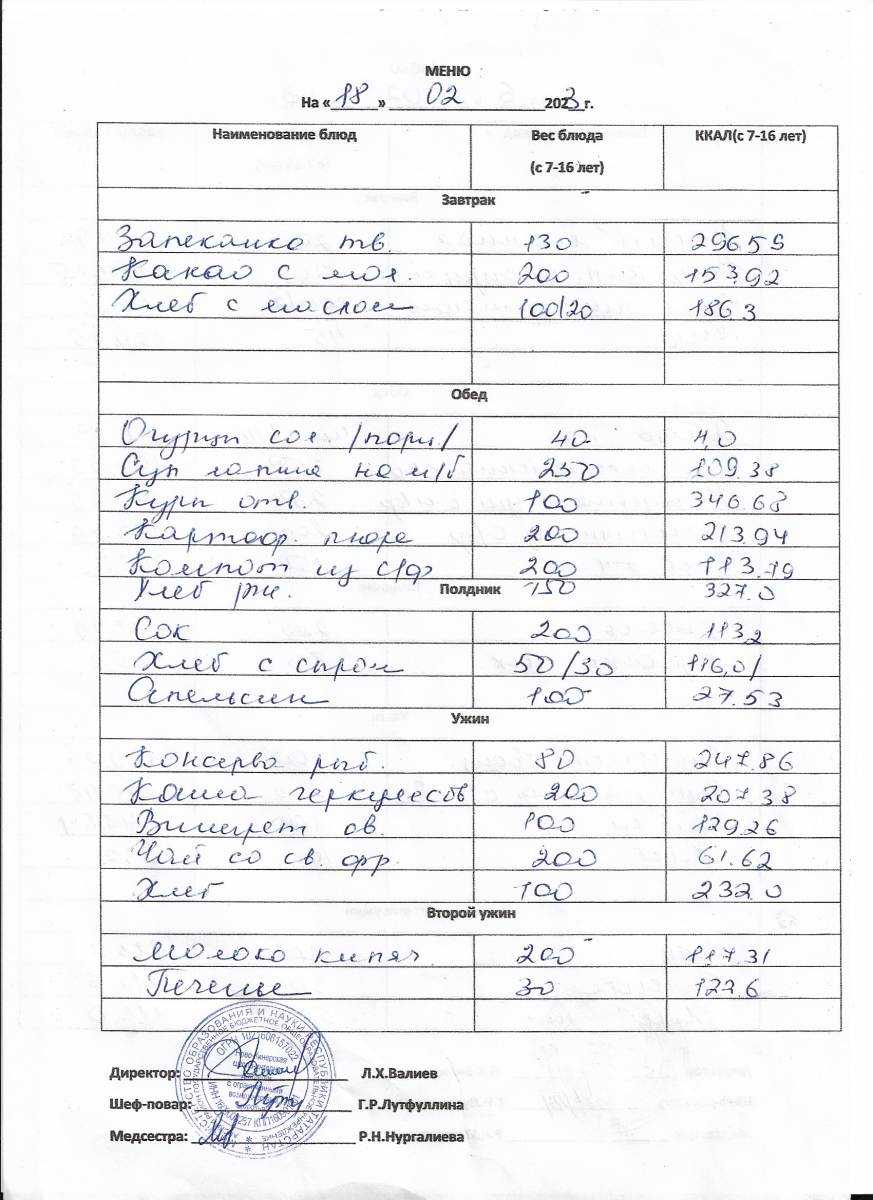 МЕНЮ
На «18» 02 2023 г.
Наименование блюд Вес блюда (с 7-16 лет) ККАЛ(с 7-16 лет)
Завтрак
Запеканко тв. 130 296.59
Какао с мол. 200 153.92
Хлеб с маслом 100/20 186.3
Обед
Огурцы сол /порц/ 40 4,0
Суп лапша на м/б 250 109.38
Куры отв. 100 346.68
Картоф. пюре 200 213.94
Компот из с/ф 200 113.79
Хлеб рж. 150 327.0
Полдник
Сок 200 113,2
Хлеб с сыром 50/30 116,0/
Апельсин 100 27.53
Ужин
Консерва рыб. 80 247.86
Каша геркулесов 200 207.38
Винегрет ов. 100 129.26
Чай со св. фр. 200 61.62
Хлеб 100 232.0
Второй ужин
Молоко кипяч. 200 117.31
Печенье 30 127.6
Директор: Л.Х.Валиев
Шеф-повар: Г.Р.Лутфуллина
Медсестра: Р.Н.Нургалиева